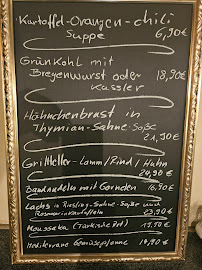 Kartoffel-Orangen-chili
Suppe 6,90€
Grünkohl mit
Bregenwurst oder 18,90€
Kassler
Hähnchenbrust in
Thymian-Sahne-Soße
21,90€
Grillteller-Lamm/Rind/Hahn
24,90€
Bandnudeln mit Garnelen 16,90€
Lachs in Riesling-Sahne-Soße und
Rosmarinkartoffeln 23,90€
Moussaka (Türkische Art) 19,90€
Mediterrane Gemüsepfanne 18,90€